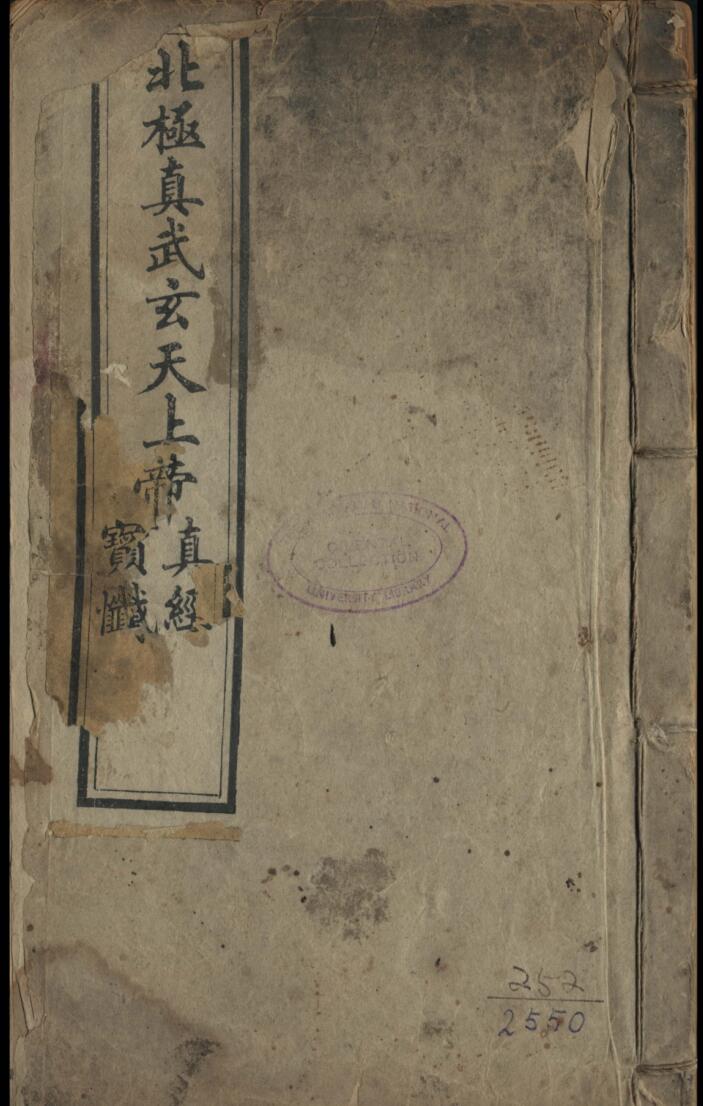 北極真武玄天上帝
真經
寶懺
NATIONAL
ORIENTAL
COLLECTION
UNIVERSITY LIBRARY
252
2550